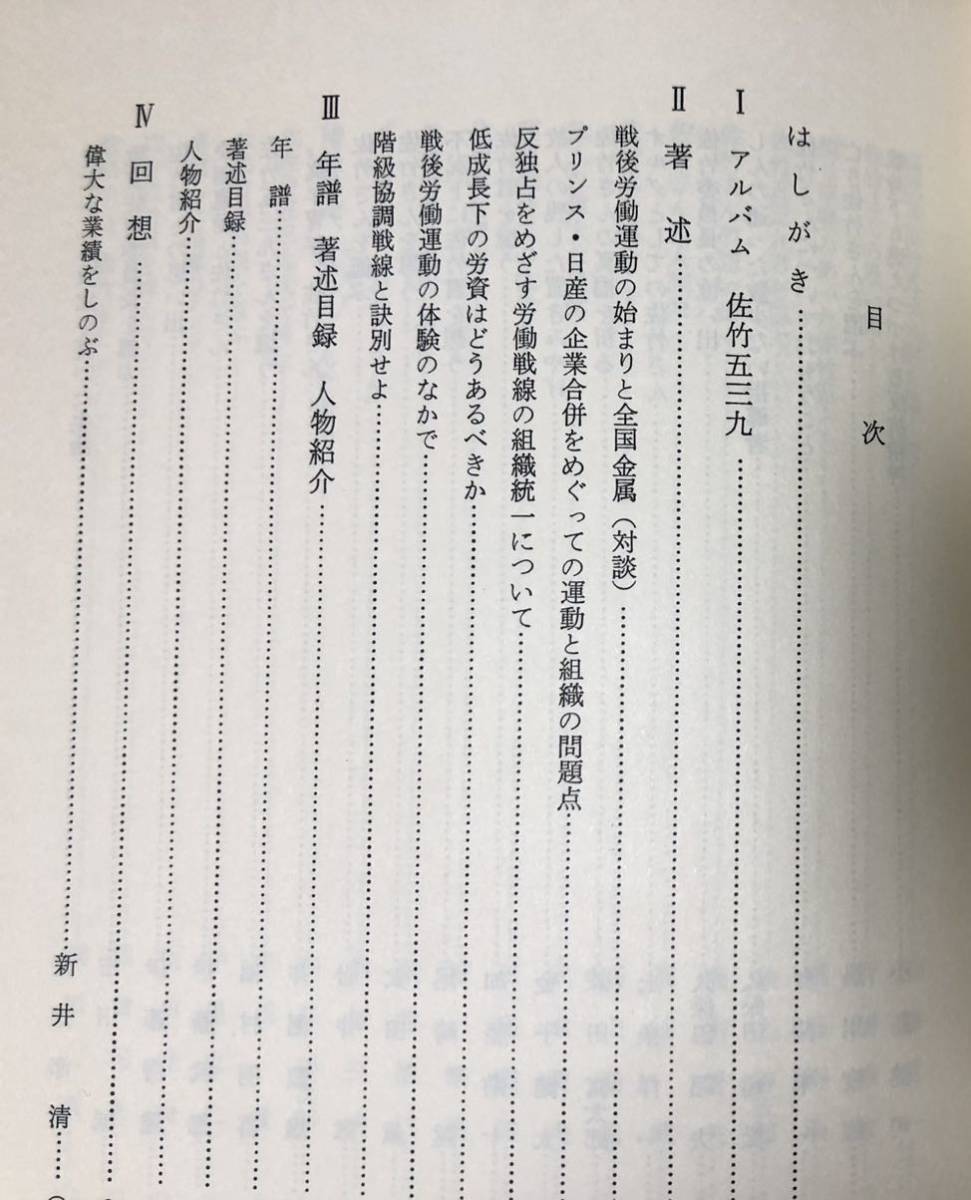 目次
はしがき
Ⅰ アルバム 佐竹五三九
Ⅱ 著述
戦後労働運動の始まりと全国金属(対談)
プリンス・日産の企業合併をめぐっての運動と組織の問題点
反独占をめざす労働戦線の組織統一について
低成長下の労資はどうあるべきか
戦後労働運動の体験のなかで
階級協調戦線と訣別せよ
Ⅲ 年譜 著述目録 人物紹介
年譜
著述目録
人物紹介
Ⅳ 回想
偉大な業績をしのぶ 新井清